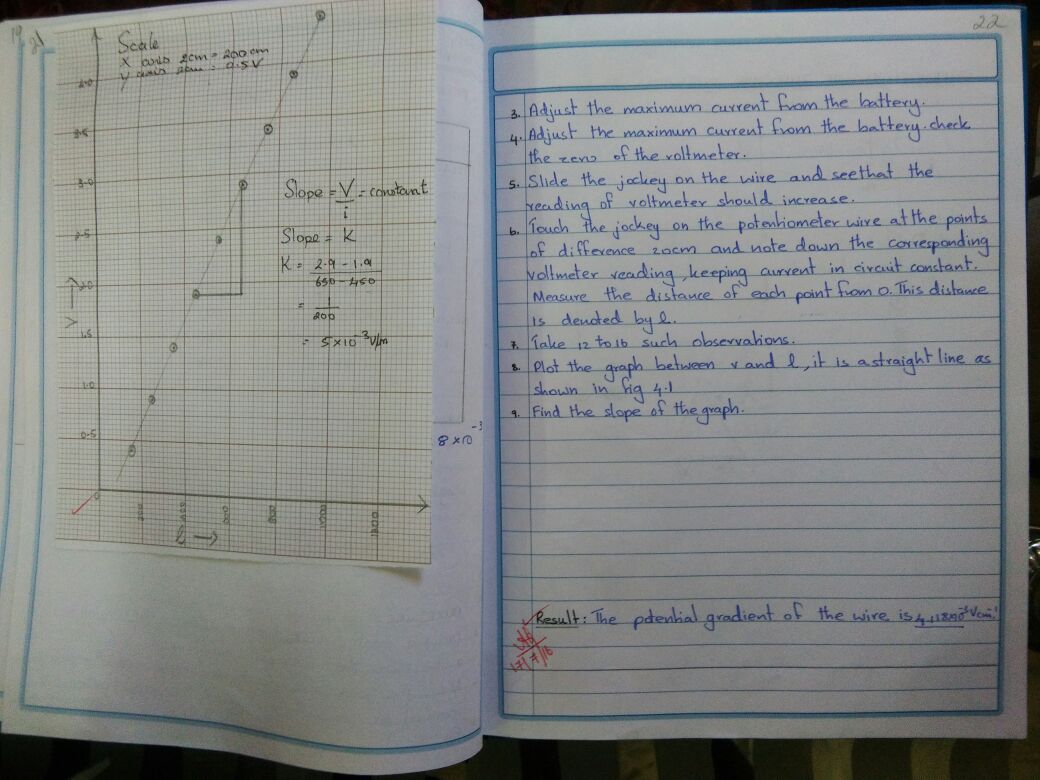 21
Scale
X axis 2cm = 200cm
Y axis 2cm = 0.5V
Slope = V/i = constant
Slope = K
K = 2.9 - 1.9
650 - 450
= 1
200
= 5×10⁻³ V/m
3.5
3.0
2.5
2.0
1.5
1.0
0.5
0
200
400
600
800
1000
1200
l →
V →
8 × 10⁻³
22
3. Adjust the maximum current from the battery.
4. Adjust the maximum current from the battery. check
the zero of the voltmeter.
5. Slide the jockey on the wire and see that the
reading of voltmeter should increase.
6. Touch the jockey on the potentiometer wire at the points
of difference 20cm and note down the corresponding
voltmeter reading, keeping current in circuit constant.
Measure the distance of each point from 0. This distance
is denoted by l.
7. Take 12 to 16 such observations.
8. Plot the graph between v and l, it is a straight line as
shown in fig 4.1
9. Find the slope of the graph.
Result: The potential gradient of the wire is
17/7/16